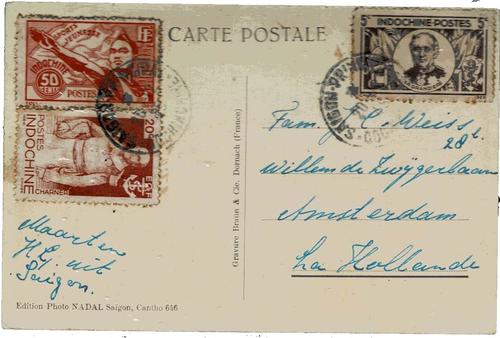 CARTE POSTALE
SPORTS JEUNESSE
INDOCHINE
50
CENTS
POSTES
5c INDOCHINE-POSTES 5c
20c
POSTES
INDOCHINE
CHARNER
SAIGON-PRINCIPAL
Fam. J. L. Weiss
28
Willem de Zwijgerlaan
Amsterdam
La Hollande
Maarten
uit
Saigon.
Gravure Braun & Cie. Dornach (France)
Edition Photo NADAL Saïgon, Cantho 646